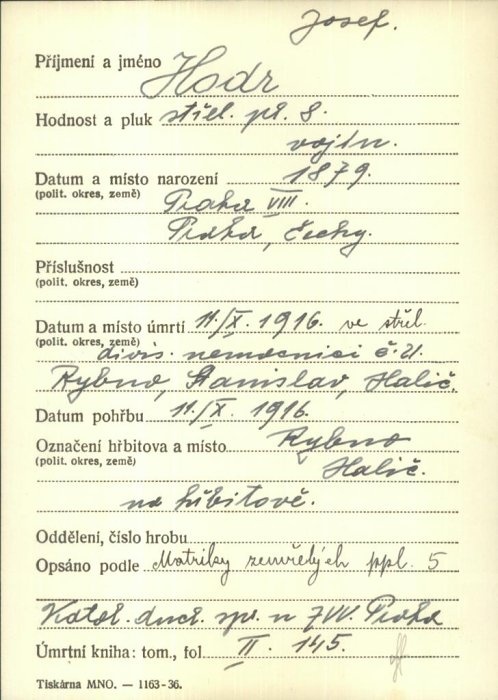 Josef.
Příjmení a jméno Hodr
Hodnost a pluk střel. pl. 8.
vojín.
Datum a místo narození 1879.
(polit. okres, země) Praha VIII.
Praha, Čechy.
Příslušnost
(polit. okres, země)
Datum a místo úmrtí 11./X. 1916. ve střel.
(polit. okres, země) divis. nemocnici č. 21.
Rybno, Stanislav, Halič.
Datum pohřbu 11./X. 1916.
Označení hřbitova a místo Rybno
(polit. okres, země) Halič.
na hřbitově.
Oddělení, číslo hrobu
Opsáno podle Matriky zemřelých ppl. 5
Katol. duch. spr. u ZVV. Praha
Úmrtní kniha: tom., fol. II. 145.
Tiskárna MNO. — 1163-36.